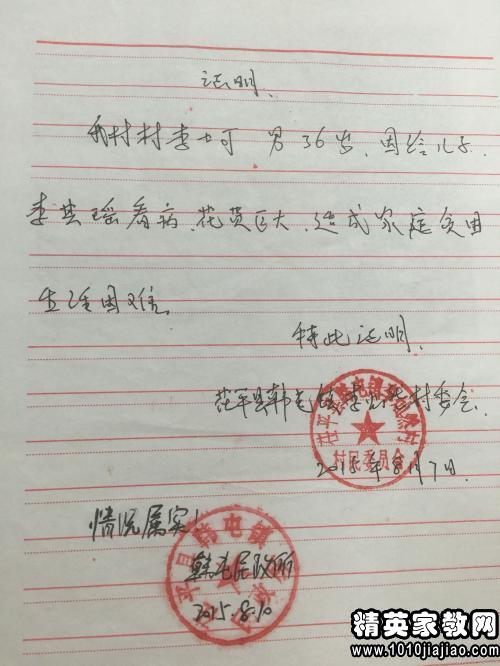 证明
我村村李士可 男 36岁、因给儿子
李其瑶看病、花费巨大、造成家庭
生活困难。
特此证明
茌平县韩屯镇李 村委会
村民委员会
2015年8月7日
情况属实！
韩屯民政所
2015.8.10
精英家教网
http://www.1010jiajiao.com